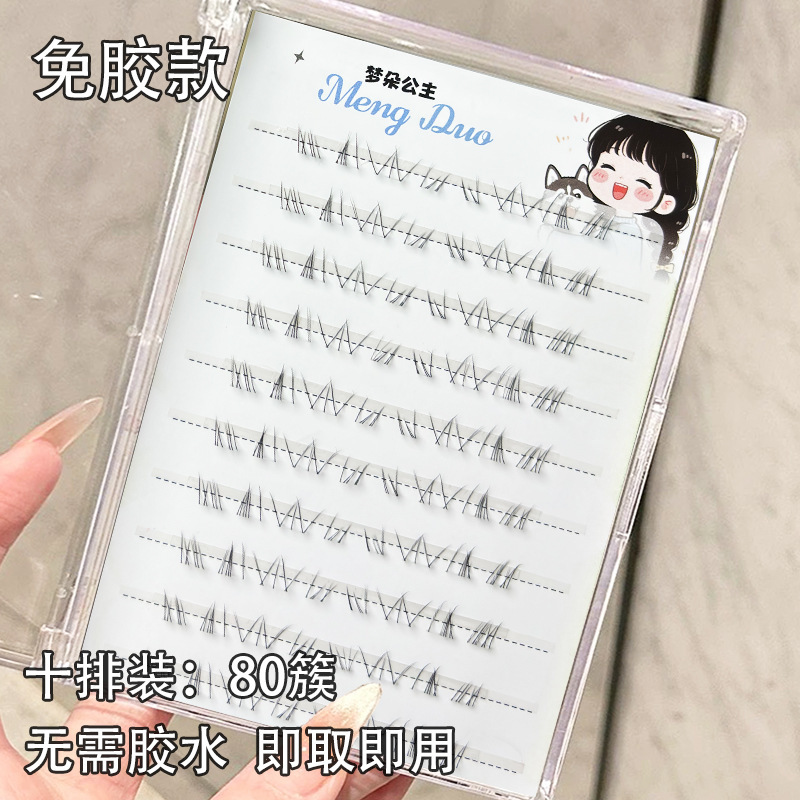 免胶款
梦朵公主
Meng Duo
十排装：80簇
无需胶水 即取即用